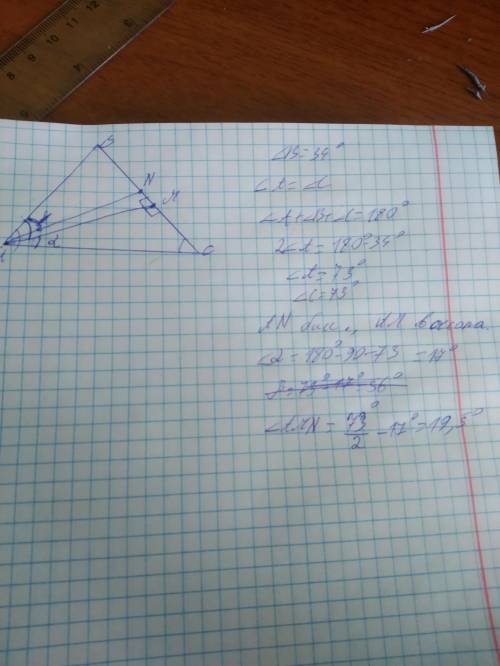 8 9 10 11 12
B
N
M
A
α
C
∠B=34°
∠A=∠
∠A+∠B+∠=180°
2∠A=180°-34°
∠A=73°
∠C=73°
AN бис., AM высота.
∠α=180°-90-73 =17°
=73°-17°=56°
73°/2 -17°=19,5°